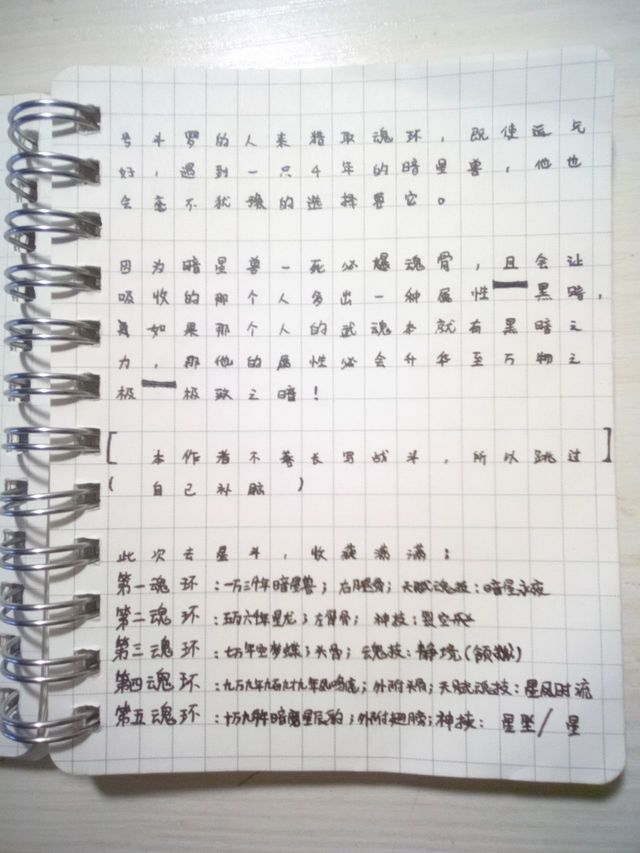 号斗罗的人来猎取魂环，既使运气
好，遇到一只4年的暗星兽，他也
会毫不犹豫的选择要它。
因为暗星兽一死必爆魂骨，且会让
吸收的那个人多出一种属性——黑暗，
如果那个人的武魂本就有黑暗之
力，那他的属性必会升华至万物之
极——极致之暗！
[本作者不善长写战斗，所以跳过]
(自己补脑)
此次去星斗，收获满满：
第一魂环：一万三千年暗星兽；右腿骨；天赋魂技：暗星永夜
第二魂环：五万六千年星龙；左臂骨；神技：裂空
第三魂环：七万年空梦蝶；头骨；魂技：静境(领域)
第四魂环：九万九千九百九十九年风鸣虎；外附骨；天赋魂技：星风时流
第五魂环：十万九千年暗魔星辰豹；外附翅膀；神技：星坠/星